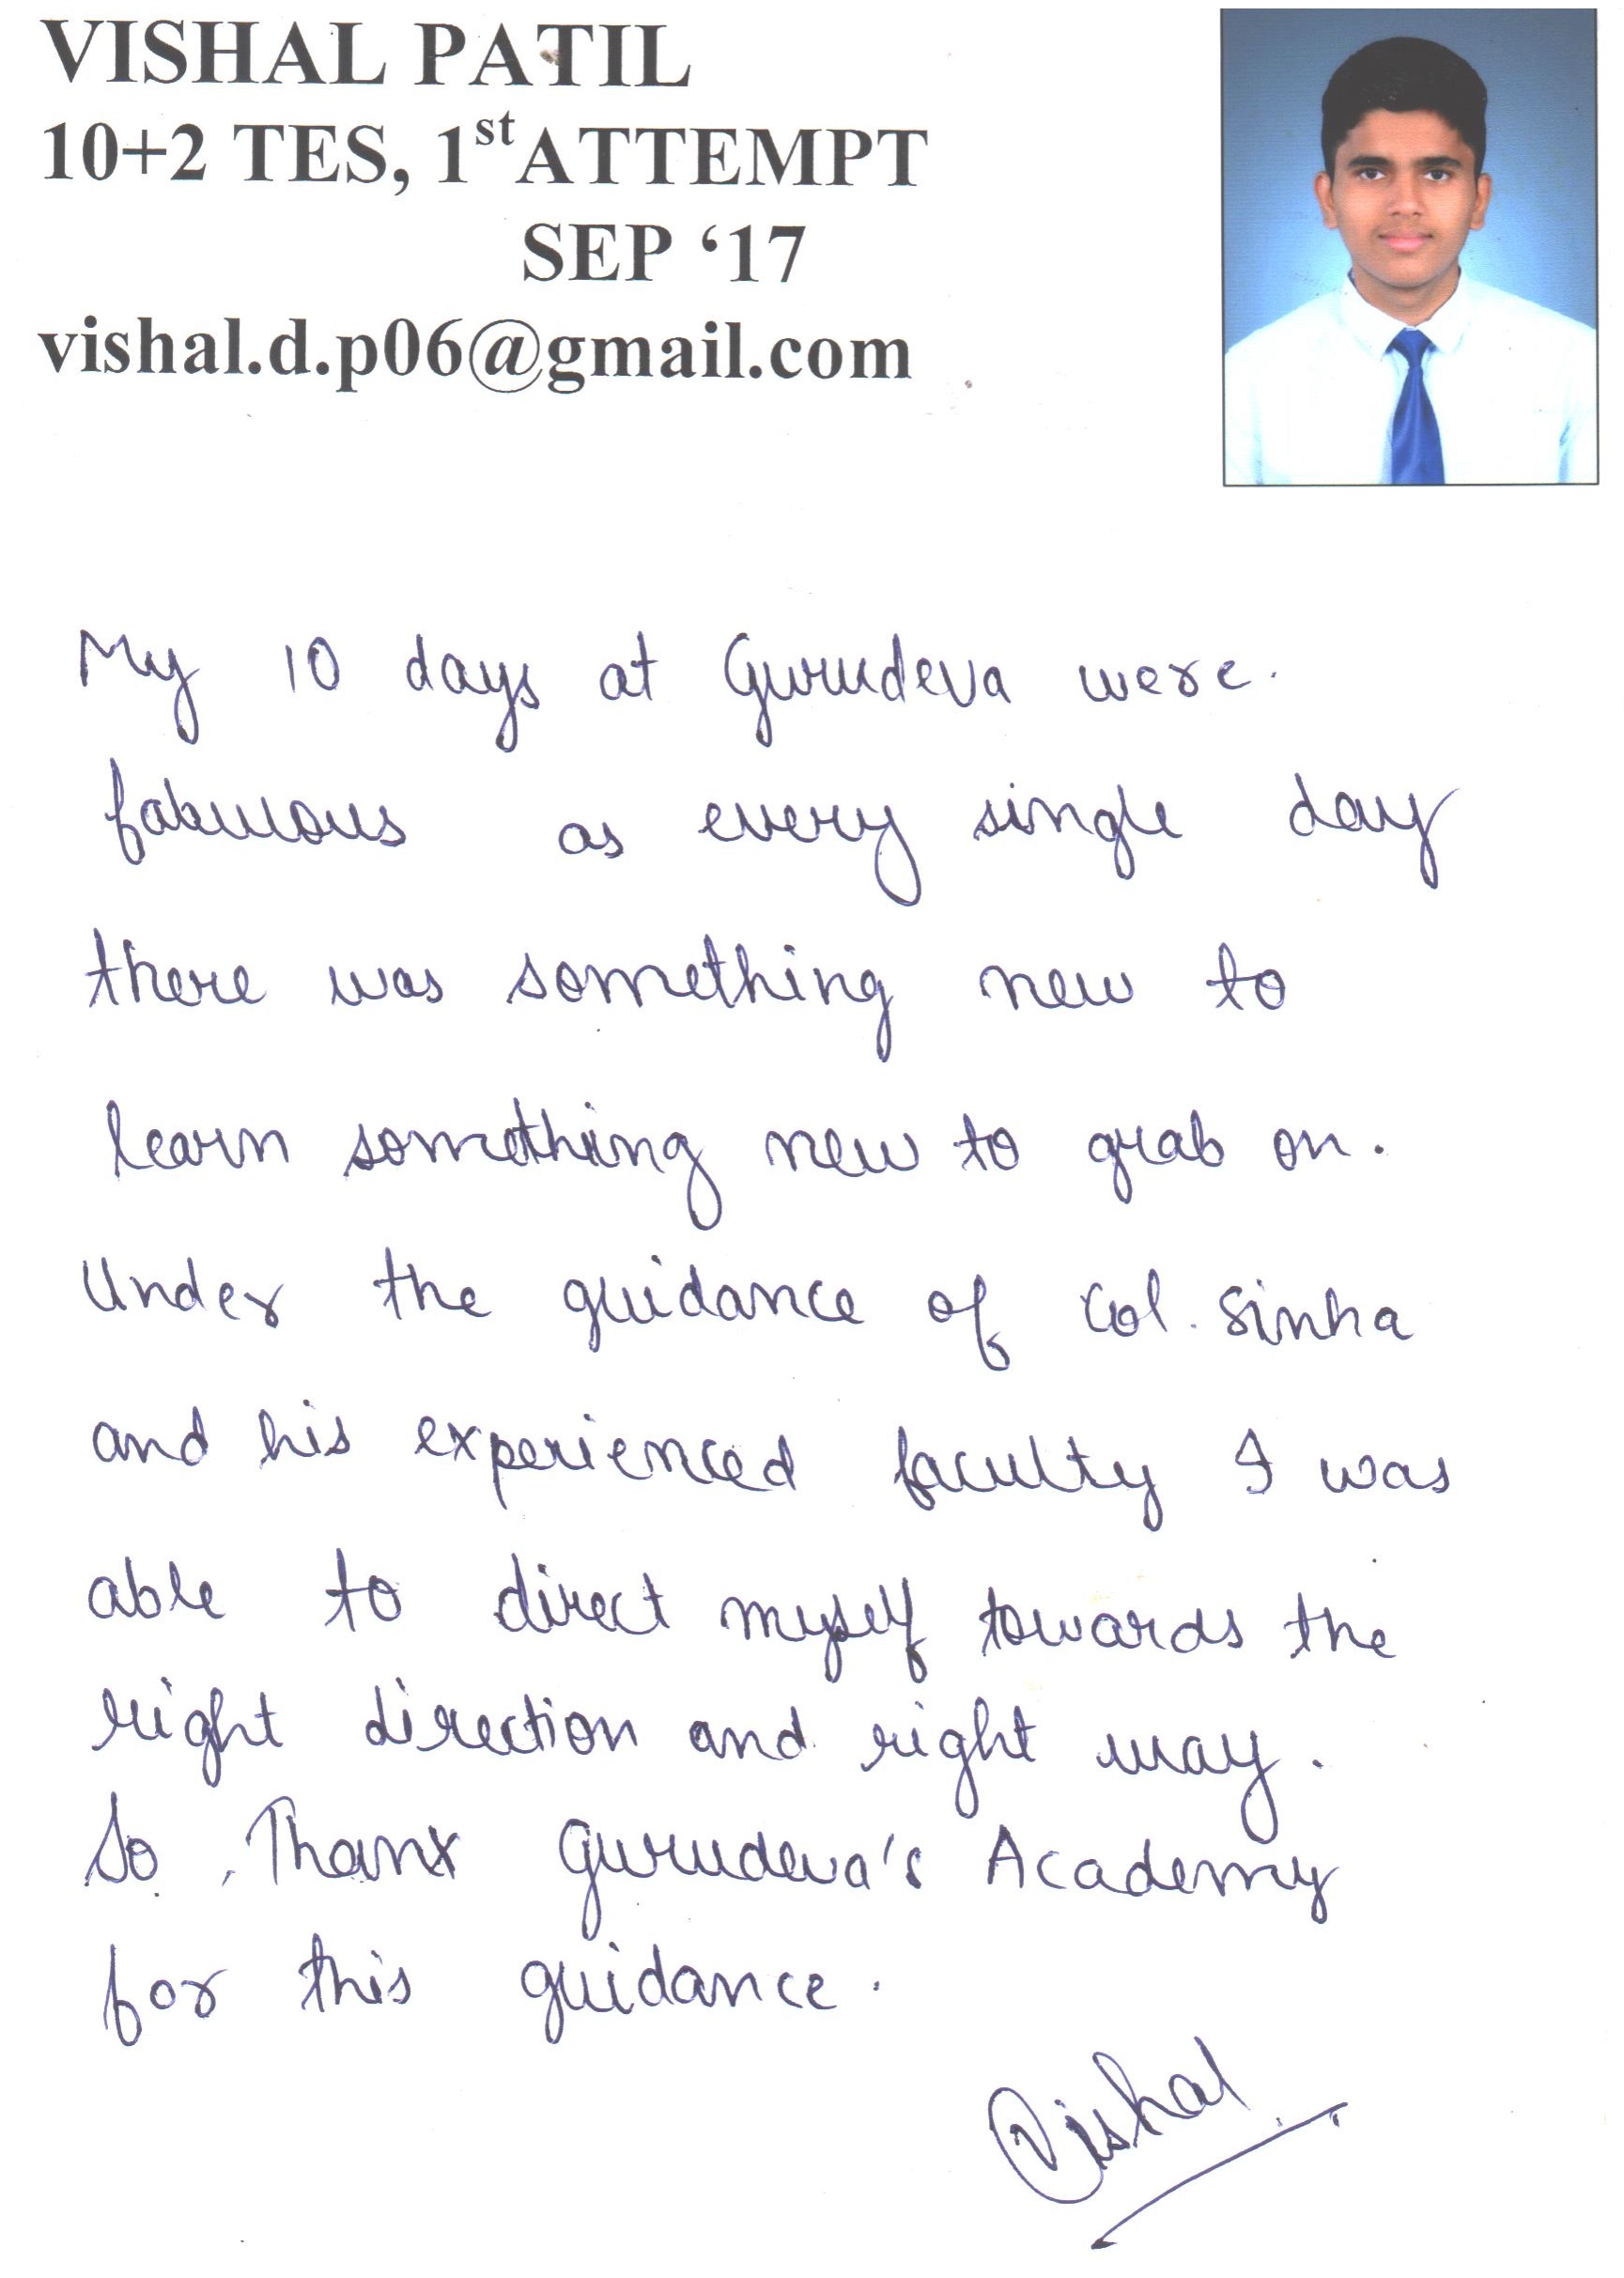 VISHAL PATIL
10+2 TES, 1st ATTEMPT
SEP ‘17
vishal.d.p06@gmail.com
My 10 days at Gurudeva were.
fabulous as every single day
there was something new to
learn something new to grab on.
Under the guidance of Col. Sinha
and his experienced faculty I was
able to direct myself towards the
right direction and right way.
So, Thanx Gurudeva's Academy
for this guidance.
Vishal